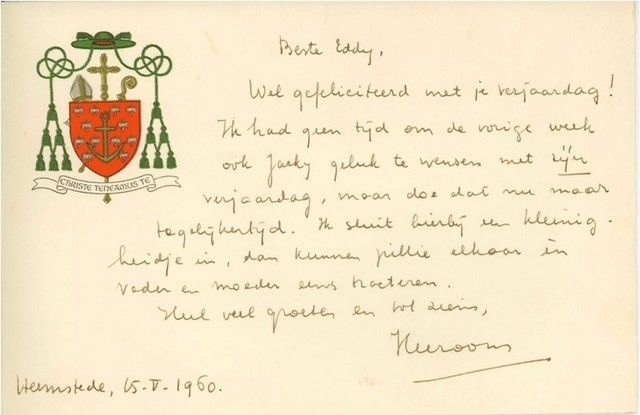 CHRISTE TENEAMUS TE
Beste Eddy,
Wel gefeliciteerd met je verjaardag!
Ik had geen tijd om de vorige week
ook Jacky geluk te wensen met zijn
verjaardag, maar doe dat nu maar
tegelijkertijd. Ik sluit hierbij een kleinig-
heidje in, dan kunnen jullie elkaar èn
vader en moeder eens tracteren.
Heel veel groeten en tot ziens,
Heeroom
Heemstede, 15-V-1960.